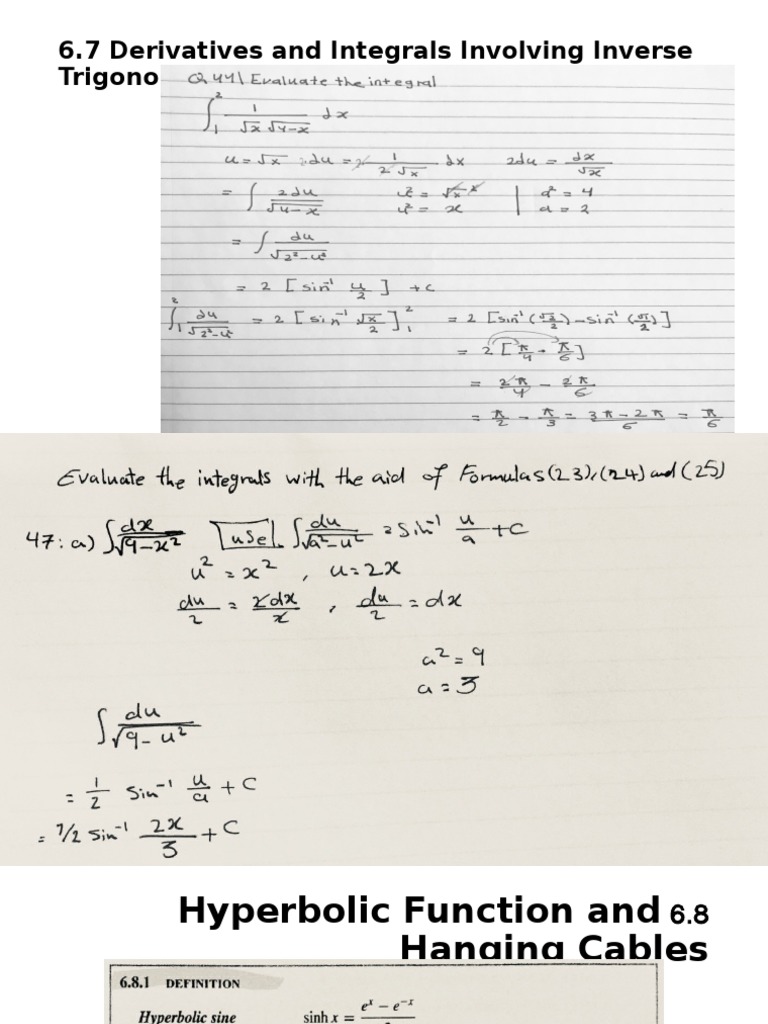 6.7 Derivatives and Integrals Involving Inverse
Trigono
Q 44 | Evaluate the integral
∫₁² 1/(√x √4-x) dx
u = √x du = 1/(2√x) dx 2du = dx/√x
= ∫ 2du/√4-x u² = √x² | a² = 4
u² = x | a = 2
= ∫ du/√2²-u²
= 2 [sin⁻¹ u/2] + c
∫₁² du/√2²-u² = 2 [sin⁻¹ √x/2]₁² = 2 [sin⁻¹(√2/2) - sin⁻¹(√1/2)]
= 2 [π/4 - π/6]
= 2π/4 - 2π/6
= π/2 - π/3 = 3π-2π/6 = π/6
Evaluate the integrals with the aid of Formulas (23), (24) and (25)
47: a) ∫ dx/√9-x² use ∫ du/√a²-u² = Sin⁻¹ u/a + C
u² = x² , u = 2x
du/2 = 2dx/2 , du/2 = dx
a² = 9
a = 3
∫ du/√9-u²
= 1/2 Sin⁻¹ u/a + C
= 1/2 sin⁻¹ 2x/3 + C
Hyperbolic Function and 6.8
Hanging Cables
6.8.1 DEFINITION
Hyperbolic sine sinh x = eˣ − e⁻ˣ